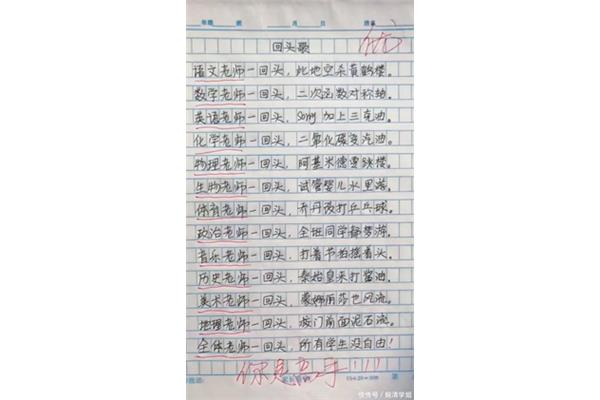 年级 班 月 日
优
回头录
语文老师一回头，此地空余黄鹤楼。
数学老师一回头，二次函数对称轴。
英语老师一回头，sorry加上三克油。
化学老师一回头，二氧化碳变汽油。
物理老师一回头，阿基米德要跳楼。
生物老师一回头，试管婴儿水里游。
体育老师一回头，乔丹改打乒乓球。
政治老师一回头，全班同学静梦游。
音乐老师一回头，打着节拍摇着头。
历史老师一回头，秦始皇来打酱油。
美术老师一回头，蒙娜丽莎也风流。
地理老师一回头，校门前面泥石流。
全体老师一回头，所有学生没自由！
你是高手！！！！
快传号/晓清学姐